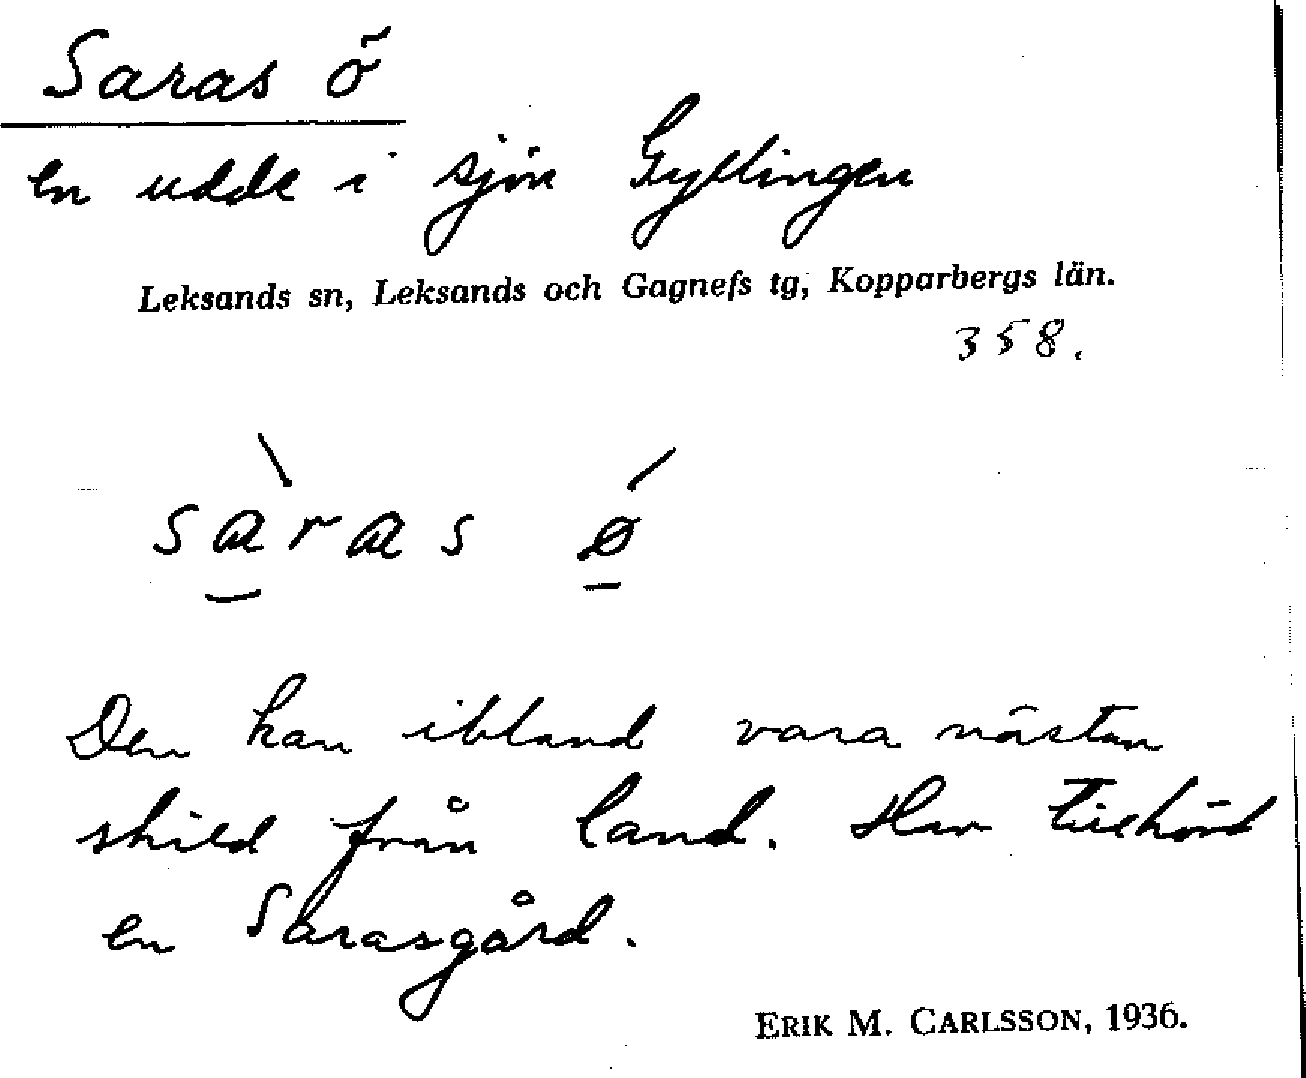 Saras ö
en udde i sjön Gyllingen
Leksands sn, Leksands och Gagnefs tg, Kopparbergs län.
358.
saras ø
Den kan ibland vara nästan
skild från land. Har tillhört
en Sarasgård.
ERIK M. CARLSSON, 1936.